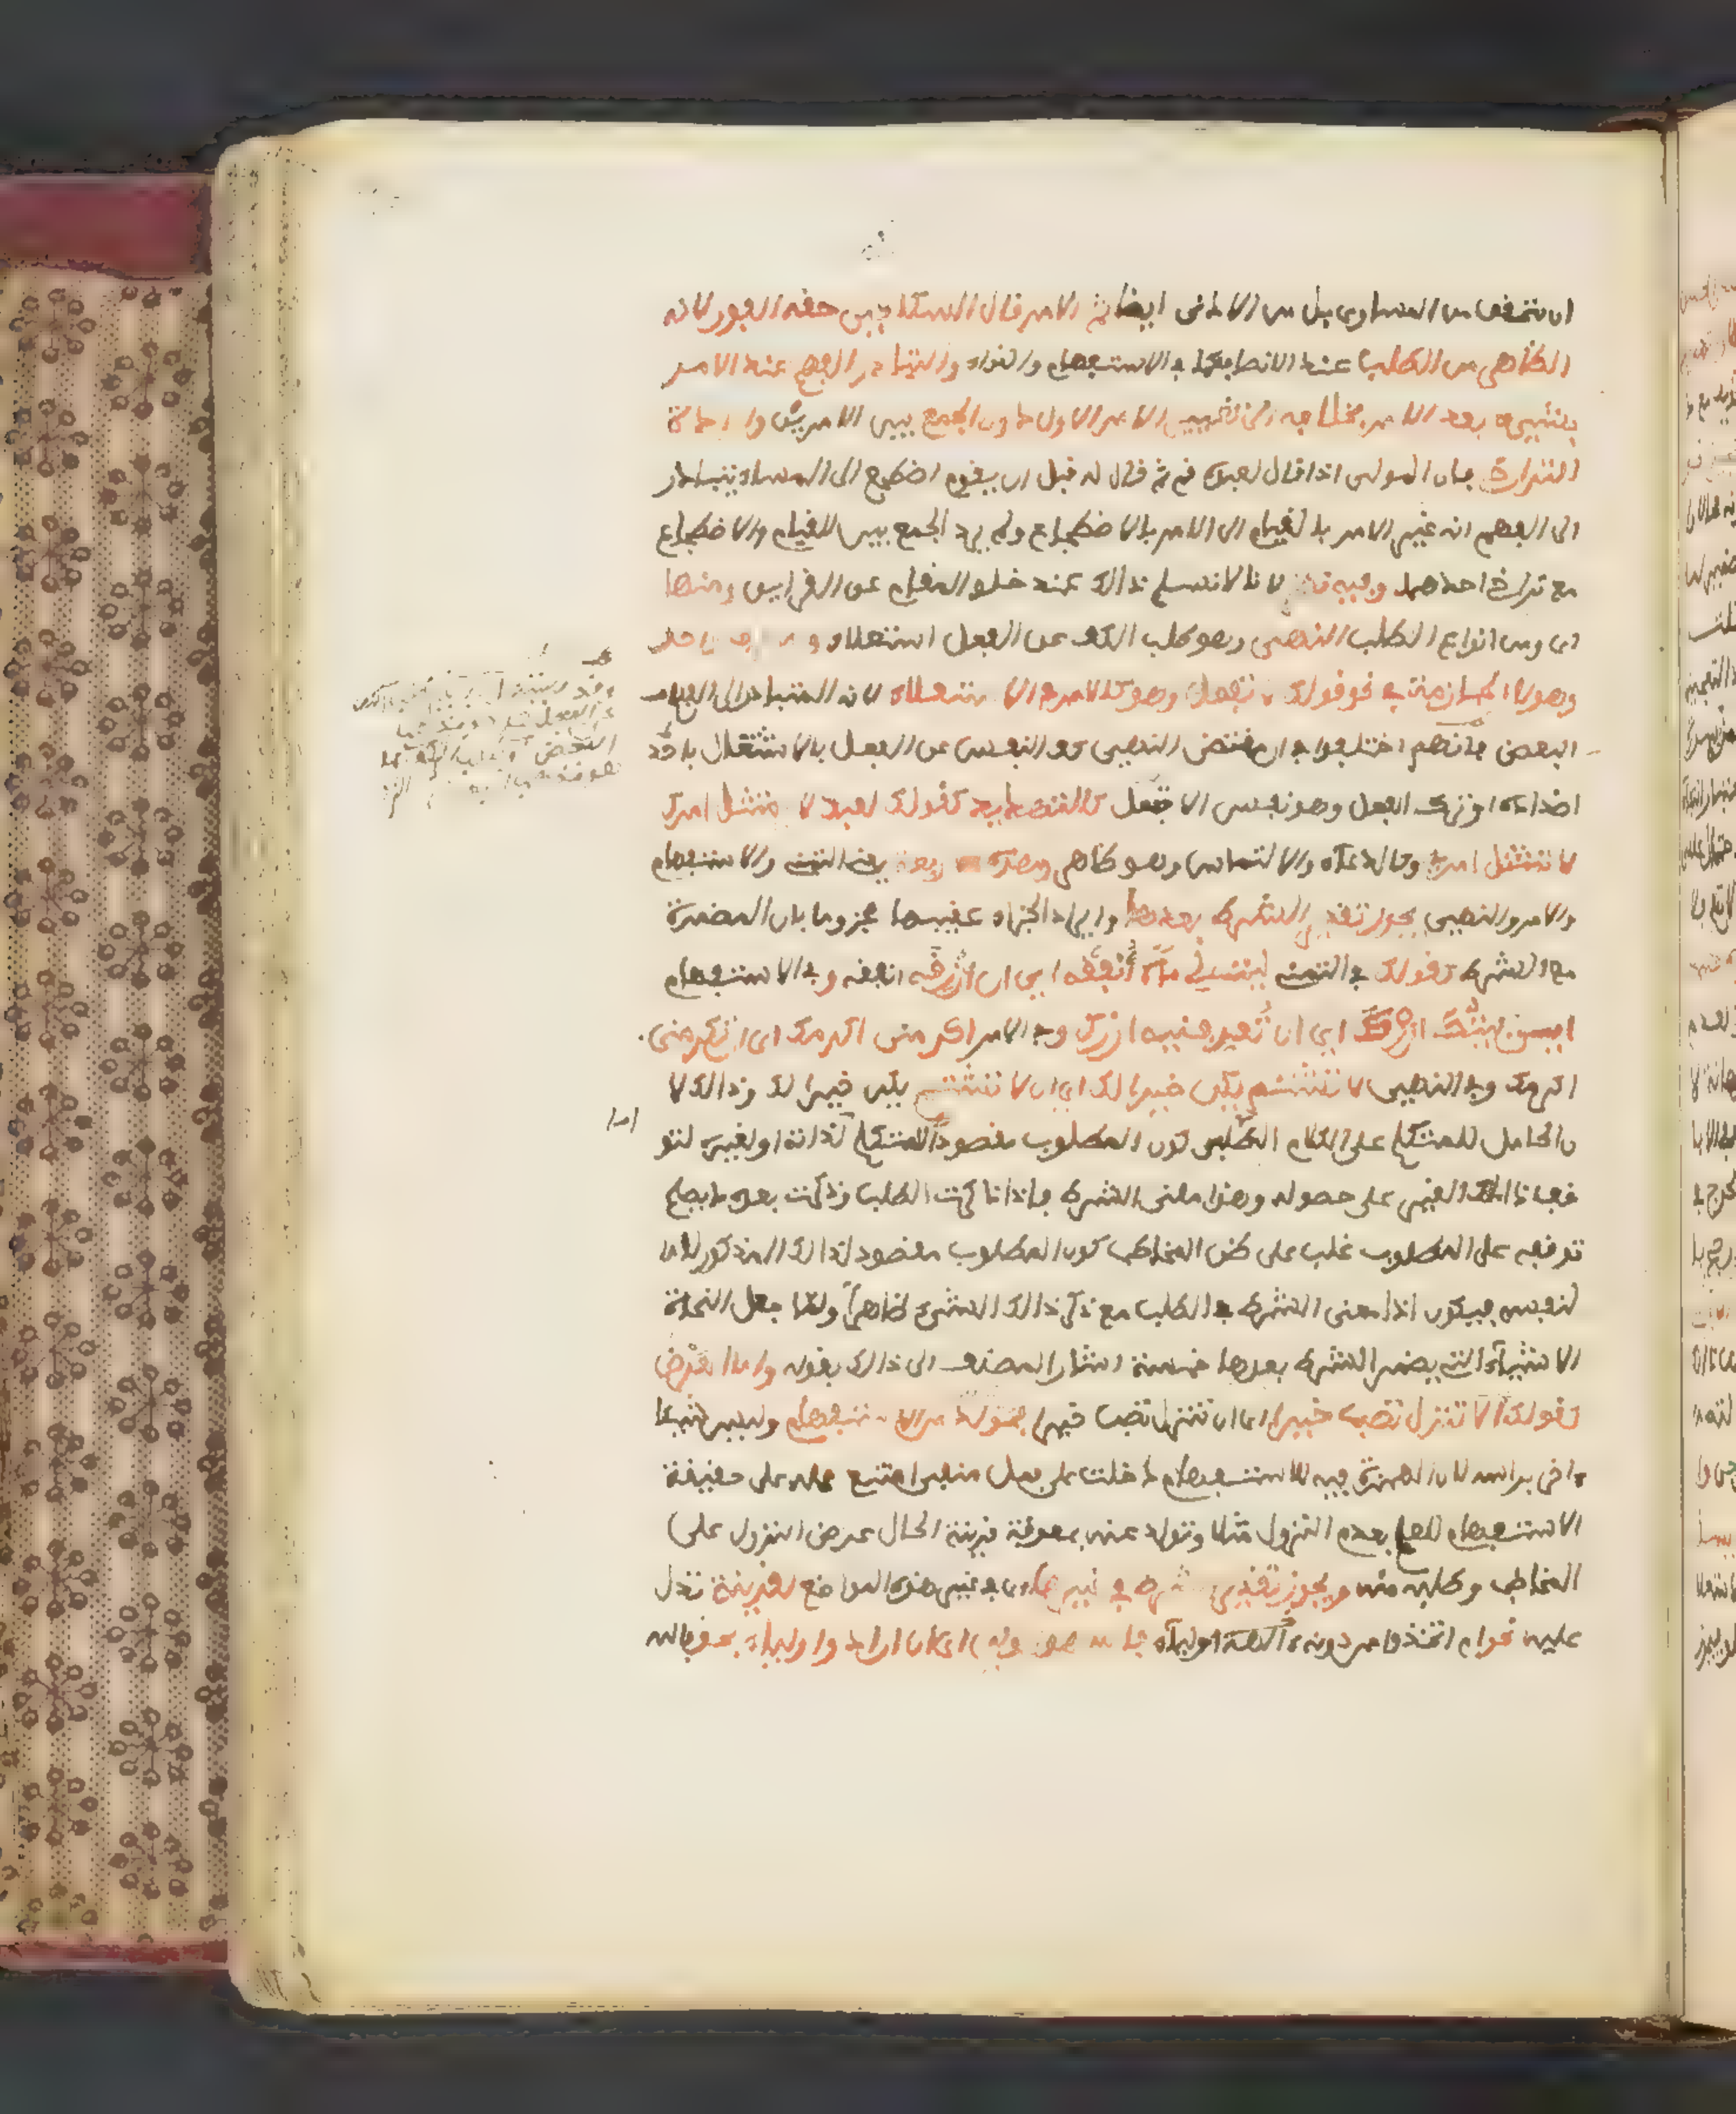 ان تتحقق من المساوى بل من الادنى ايضا ثم الامر قال السكاكى حقه الفور لانه
الظاهر من الطلب عند الانصاف كما في الاستفهام والنداء والتبادر الفهم عند الامر
بشيء بعد الامر بخلافه الى تغيير الامر الاول دون الجمع بين الامرين وارادة
التراخى فان المولى اذا قال لعبده قم ثم قال له قبل ان يقوم اضطجع الى المساء يتبادر
الى الفهم انه غير الامر بالقيام الى الامر بالاضطجاع ولم يرد الجمع بين القيام والاضطجاع
مع تراخى احدهما وفيه نظر لانا لا نسلم ذالك عند خلو المقام عن القراين ومنها
اى ومن انواع الطلب النهى وهو طلب الكف عن الفعل استعلاء وله حرف واحد
وهو لا الجازمة في نحو قولك لا تفعل وهو كالامر في الاستعلاء لانه المتبادر الى الفهم
البعض فانهم اختلفوا في ان مقتضى النهى كف النفس عن الفعل بالاشتغال باحد
اضداده او ترك الفعل وهو نفس الا تفعل كالتهديد كقولك لعبد لا يمتثل امرك
لا تمتثل امرى وكالدعاء والالتماس وهو ظاهر وهذه الاربعة يعنى التمنى والاستفهام
والامر والنهى يجوز تقدير الشرط بعدها وايراد الجزاء عقيبها مجزوما بان المضمرة
مع الشرط كقولك في التمنى ليت لى مالا أنفقه اي ان أرزقه انفقه وفي الاستفهام
اين بيتك ازرك اي ان تعرفنيه ازرك وفي الامر اكرمنى اكرمك اى ان تكرمنى
اكرمك وفي النهى لا تشتم يكن خيرا لك اي ان لا تشتم يكن خيرا لك وذالك لا
ن الحامل للمتكلم على الكلام الطلبى كون المطلوب مقصودا للمتكلم لذاته او لغيره لتو
قف ذالك الغير على حصوله وهذا معنى الشرط فاذا ذكرت الطلب وذكرت بعده ما يصلح
توقفه على المطلوب غلب على ظن المخاطب كون المطلوب مقصود لذالك المذكور لا
لنفسه فيكون اذا معنى الشرط في الطلب مع ذكر ذالك الشيء ظاهرا ولما جعل النحاة
الاشياء التي يضمر الشرط بعدها خمسة اشار المصنف الى ذالك بقوله واما العرض
كقولك ألا تنزل تصب خيرا اى ان تنزل تصب خيرا فمولد من الاستفهام وليس شيئا
ءاخر براسه لان الهمزة فيه للاستفهام دخلت على فعل منفى امتنع حمله على حقيقة
الاستفهام للعلم بعدم النزول مثلا وتولد عنه بمعونة قرينة الحال عرض النزول على
المخاطب وطلبه منه ويجوز تقدير الشرط في غيرها اى في غير هذه المواضع لقرينة تدل
عليه نحو ام اتخذوا من دونه ءالهة اولياء فالله هو الولي اى ان ارادوا اولياء بحق فالله